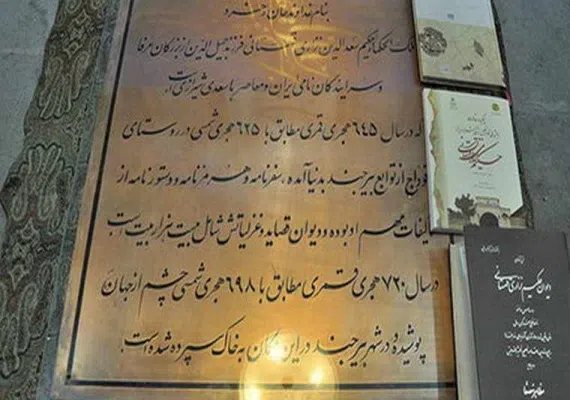 بنام خداوند جان و خرد
ملک الحکما حکیم سعدالدین نزاری قهستانی فرزند جمیل الدین از بزرگان عرفا
و سرایندگان نامی ایران و معاصر با سعدی شیرازی است
که در سال ۶۴۵ هجری قمری مطابق با ۶۲۵ هجری شمسی در روستای
فوداج از توابع بیرجند بدنیا آمده، سفرنامه و هرمزنامه و دستورنامه از
تألیفات مهم او بوده و دیوان قصاید و غزلیاتش شامل بیست هزار بیت است
در سال ۷۲۰ هجری قمری مطابق با ۶۹۸ هجری شمسی چشم از جهان
پوشیده و در شهر بیرجند در این مکان به خاک سپرده شده است
حکیم نزاری قهستانی
دیوان حکیم نزاری قهستانی